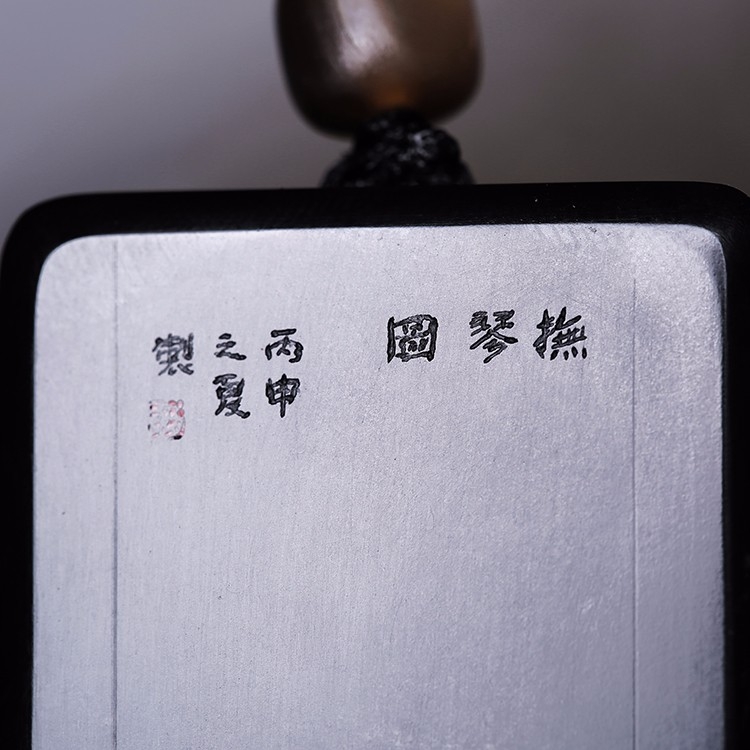 撫琴圖
丙申
之夏
製